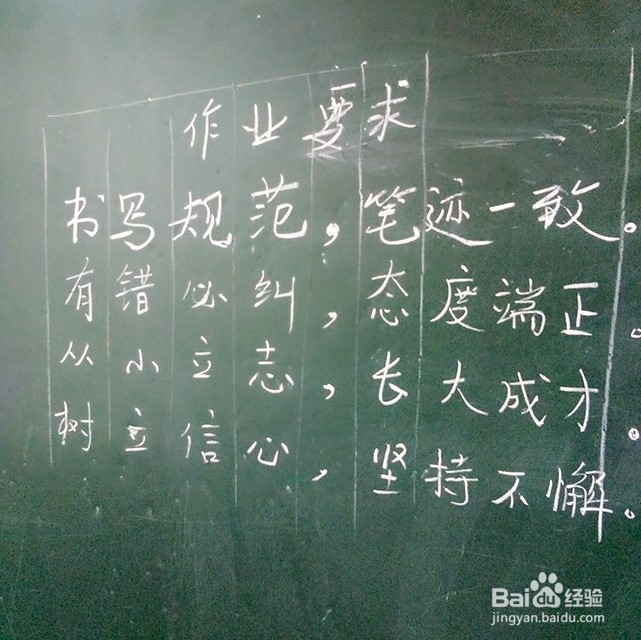 作业要求
书写规范，笔迹一致。
有错必纠，态度端正。
从小立志，长大成才。
树立信心，坚持不懈。
Baidu经验
jingyan.baidu.com